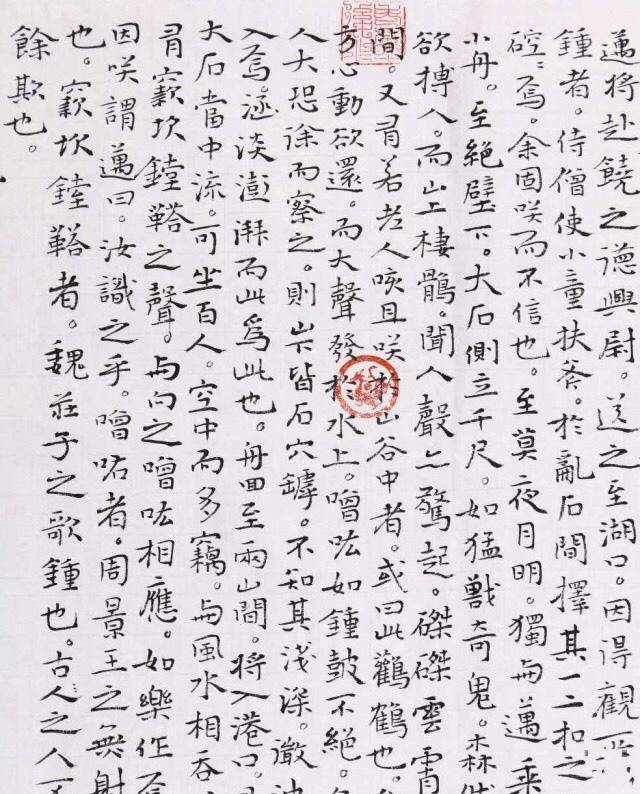 邁將赴饒之德興尉。送之至湖口。因得觀
鍾者。侍僧使小童扶斧。於亂石間擇其一二扣之
硿〻焉。余固咲而不信也。至莫夜月明。獨与邁乘
小舟。至絕壁下。大石側立千尺。如猛獸奇鬼。森
欲搏人。而山上棲鶻。聞人聲亦驚起。磔磔雲霄
間。又有若老人咳且咲於山谷中者。或曰此鸛鶴也。
方心動欲還。而大聲發於水上。噌吰如鍾鼓不絕。
人大恐徐而察之。則山下皆石穴罅。不知其淺深。微
入焉。涵淡澎湃而此爲此也。舟回至兩山間。將入港口。
大石當中流。可坐百人。空中而多竅。与風水相吞
有窾坎鏜鞳之聲。与向之噌吰相應。如樂作焉
因咲謂邁曰。汝識之乎。噌吰者。周景王之無射
也。窾坎鏜鞳者。魏莊子之歌鍾也。古人之人不
餘欺也。